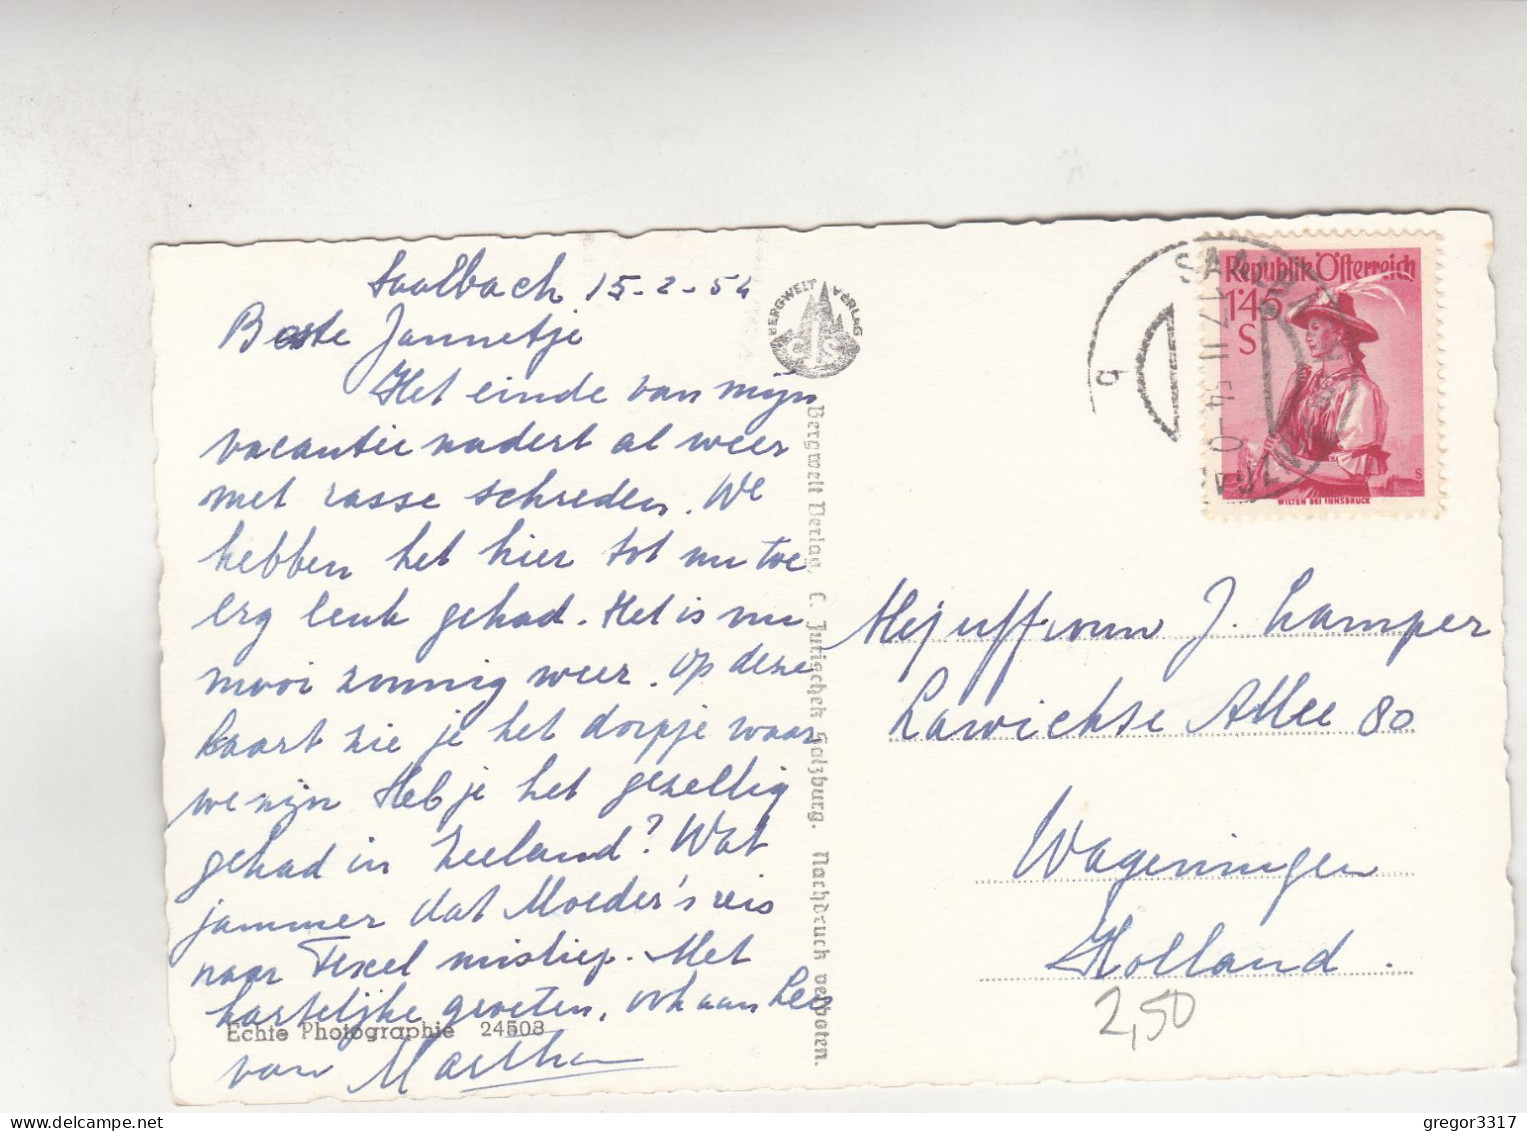 Saalbach 15-2-54
Beste Jannetje
Het einde van mijn
vacantie nadert al weer
met rasse schreden. We
hebben het hier tot nu toe
erg leuk gehad. Het is nu
mooi zonnig weer. Op deze
kaart zie je het dorpje waar
we zijn Heb je het gezellig
gehad in Zeeland? Wat
jammer dat Moeder's reis
naar Texel misliep. Met
hartelijke groeten, ook aan
van Martha
Echte Photographie 24503
BERGWELT VERLAG
CJS
Bergwelt Verlag, C. Jurischek Salzburg. Nachdruck verboten.
SAALBACH
17.II.54
b
Republik Österreich
1'45
S
WILTEN BEI INNSBRUCK
Mejuffrouw J. Lamper
Lawickse Allee 80
Wageningen
Holland.
2,50
gregor3317